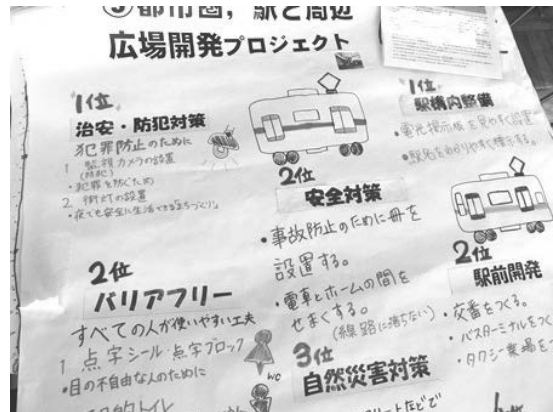 ⑤都市圏，駅と周辺
広場開発プロジェクト
1位
治安・防犯対策
犯罪防止のために
1 監視カメラの設置
・犯罪を防ぐため
2 街灯の設置
・夜でも安全に生活できるまちづくり
2位
バリアフリー
すべての人が使いやすい工夫
1 点字シール・点字ブロック
・目の不自由な人のために
トイレ
2位
安全対策
・事故防止のために冊を
設置する。
・電車とホームの間を
せまくする。
(線路に落ちない)
3位
自然災害対策
1位
駅構内整備
・電光掲示板を見やすく設置
・駅名をわかりやすく標示する。
2位
駅前開発
・交番をつくる。
・バスターミナルをつく
・タクシー乗場を
WO